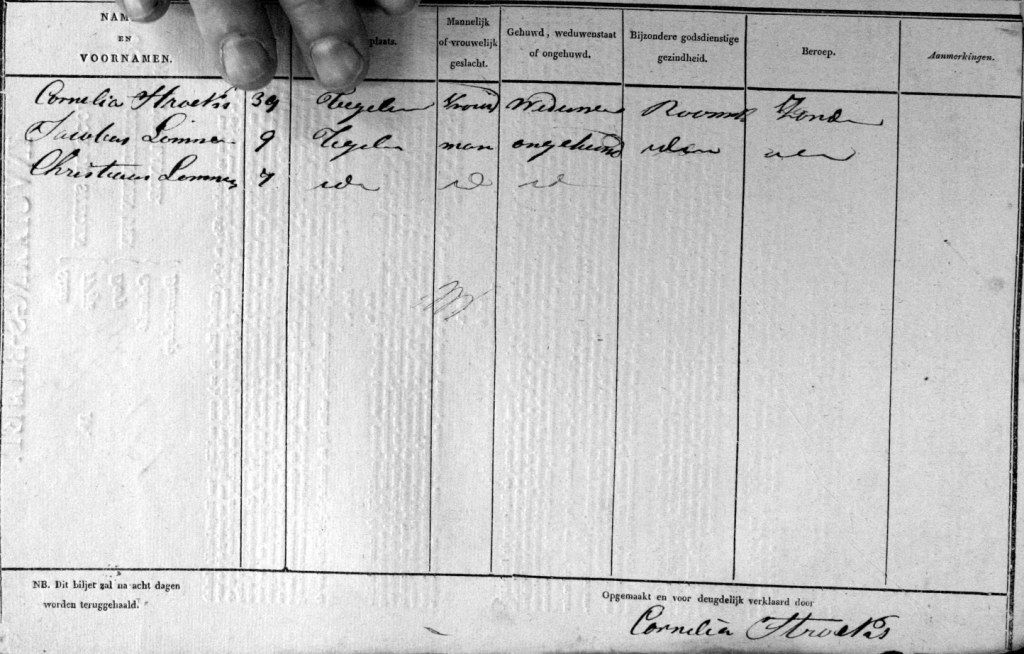 NAM
EN
VOORNAMEN.
plaats.
Mannelijk
of vrouwelijk
geslacht.
Gehuwd, weduwenstaat
of ongehuwd.
Bijzondere godsdienstige
gezindheid.
Beroep.
Aanmerkingen.
Cornelia Stroeks 39 Tegelen vrouw Weduwe Roomsch Zonder
Jacobus Lommen 9 Tegelen man ongehuwd idem idem
Christiaan Lommen 7 idem id id
NB. Dit biljet zal na acht dagen
worden teruggehaald.
Opgemaakt en voor deugdelijk verklaard door
Cornelia Stroeks